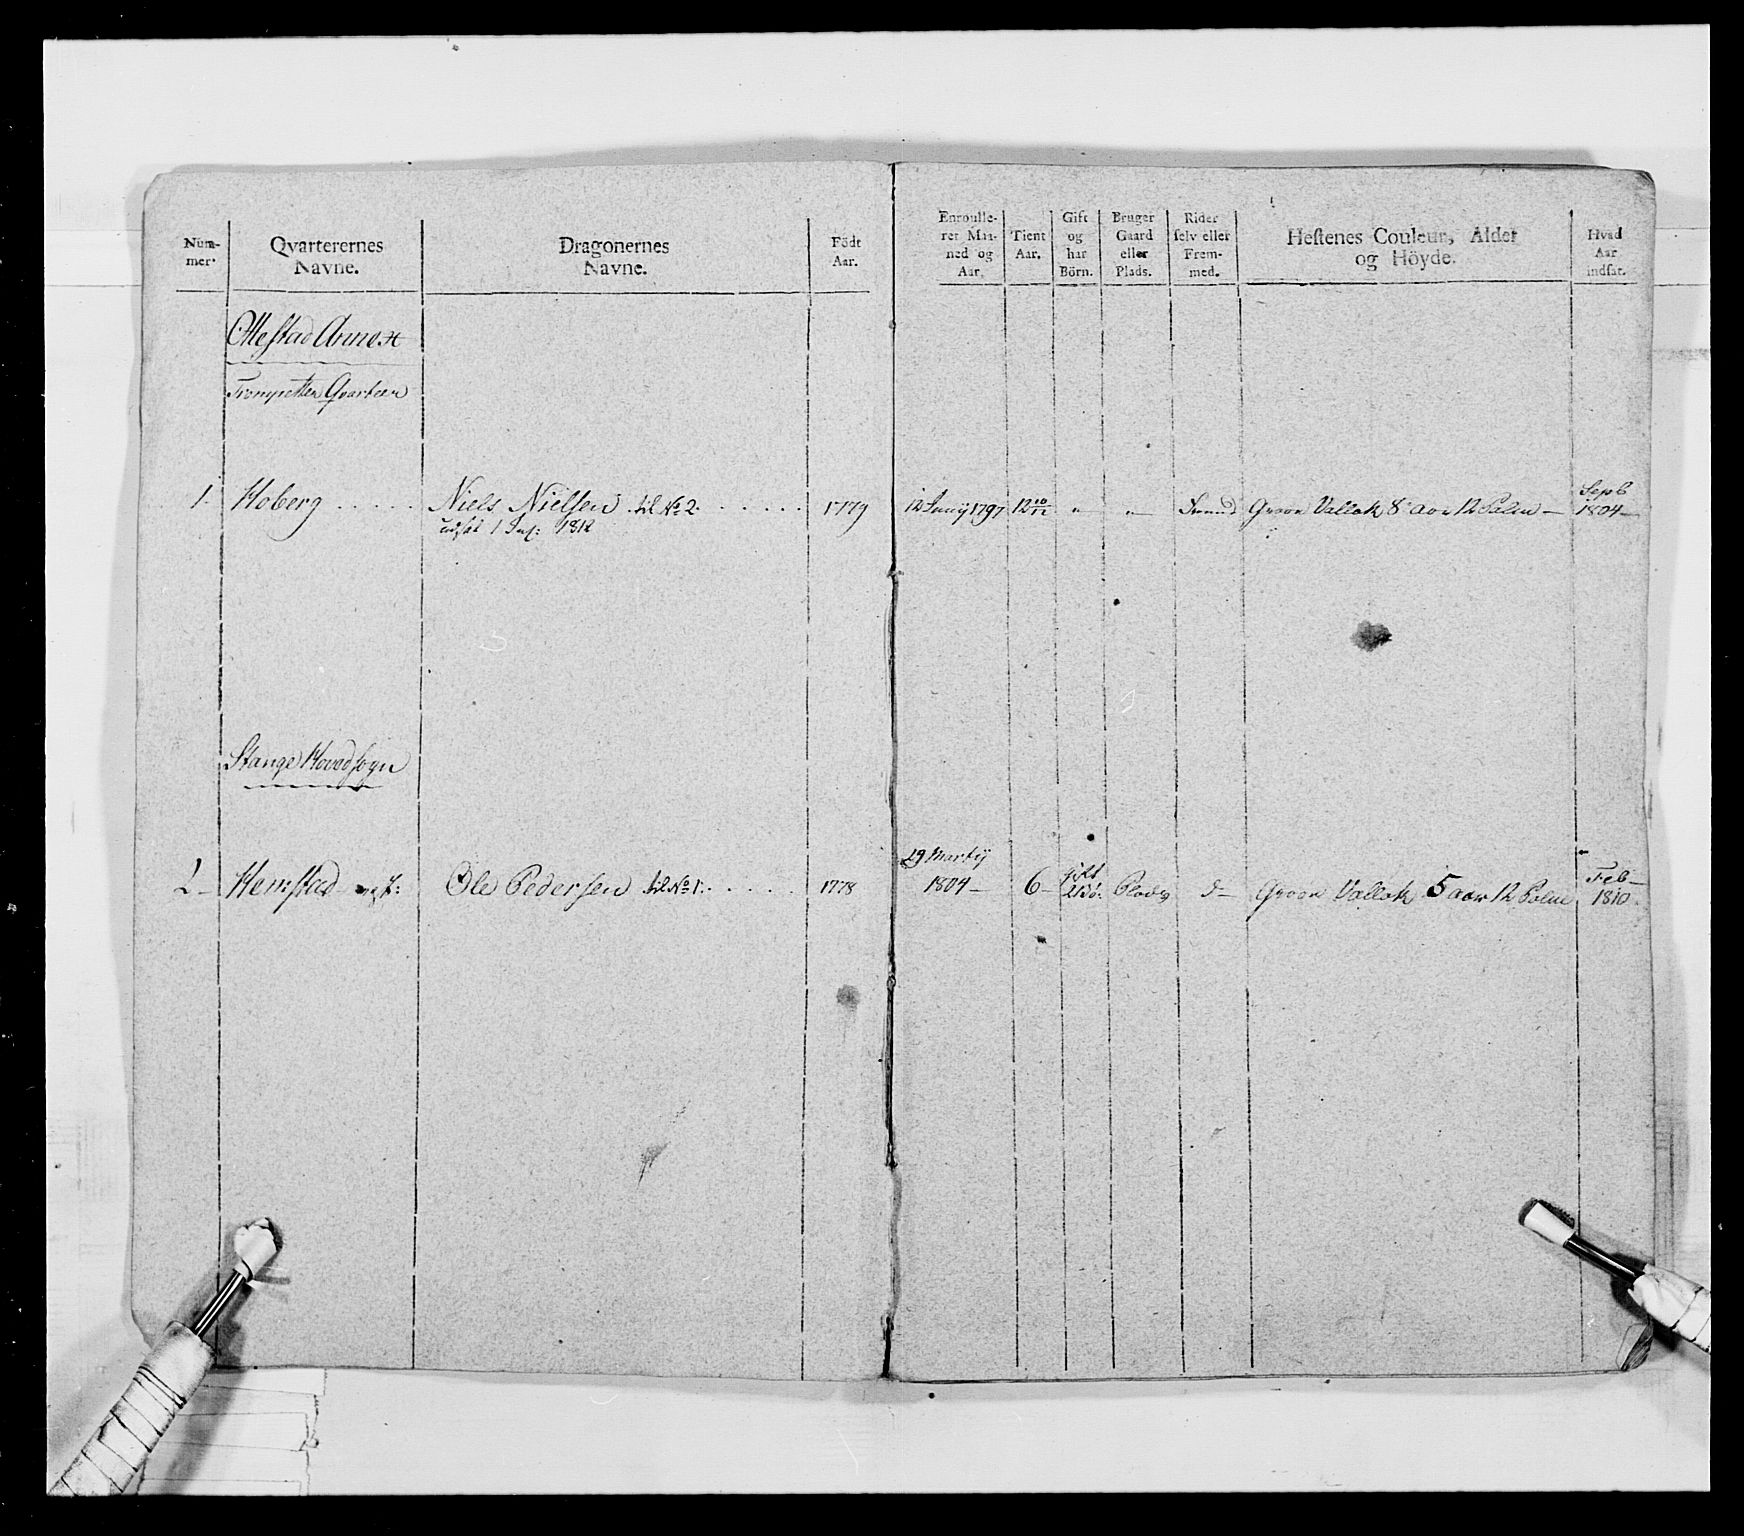 Num-
mer.
Qvarterernes
Navne.
Dragonernes
Navne.
Födt
Aar.
Enroulle-
ret Maa-
ned og
Aar.
Tient
Aar.
Gift
og
har
Börn.
Bruger
Gaard
eller
Plads.
Rider
selv eller
Frem-
med.
Hestenes Couleur, Alder
og Höyde.
Hvad
Aar
indsat.
Ottestad Annex
Trompetter Qvarteer
1. Hoberg Niels Nielsen til No 2. 1779 12 Junij 1797 12 10/12 " " Fremd Graae Vallak 8 aar 12 Palm — Sepb 1804 —
1812
Stange Hovedsogn
2 — Hemstad Ole Pedersen til No 1. 1778 29 Martij 1804 — 6 — gift Plads d — Graae Vallak 5 aar 12 Palm Feb — 1810.